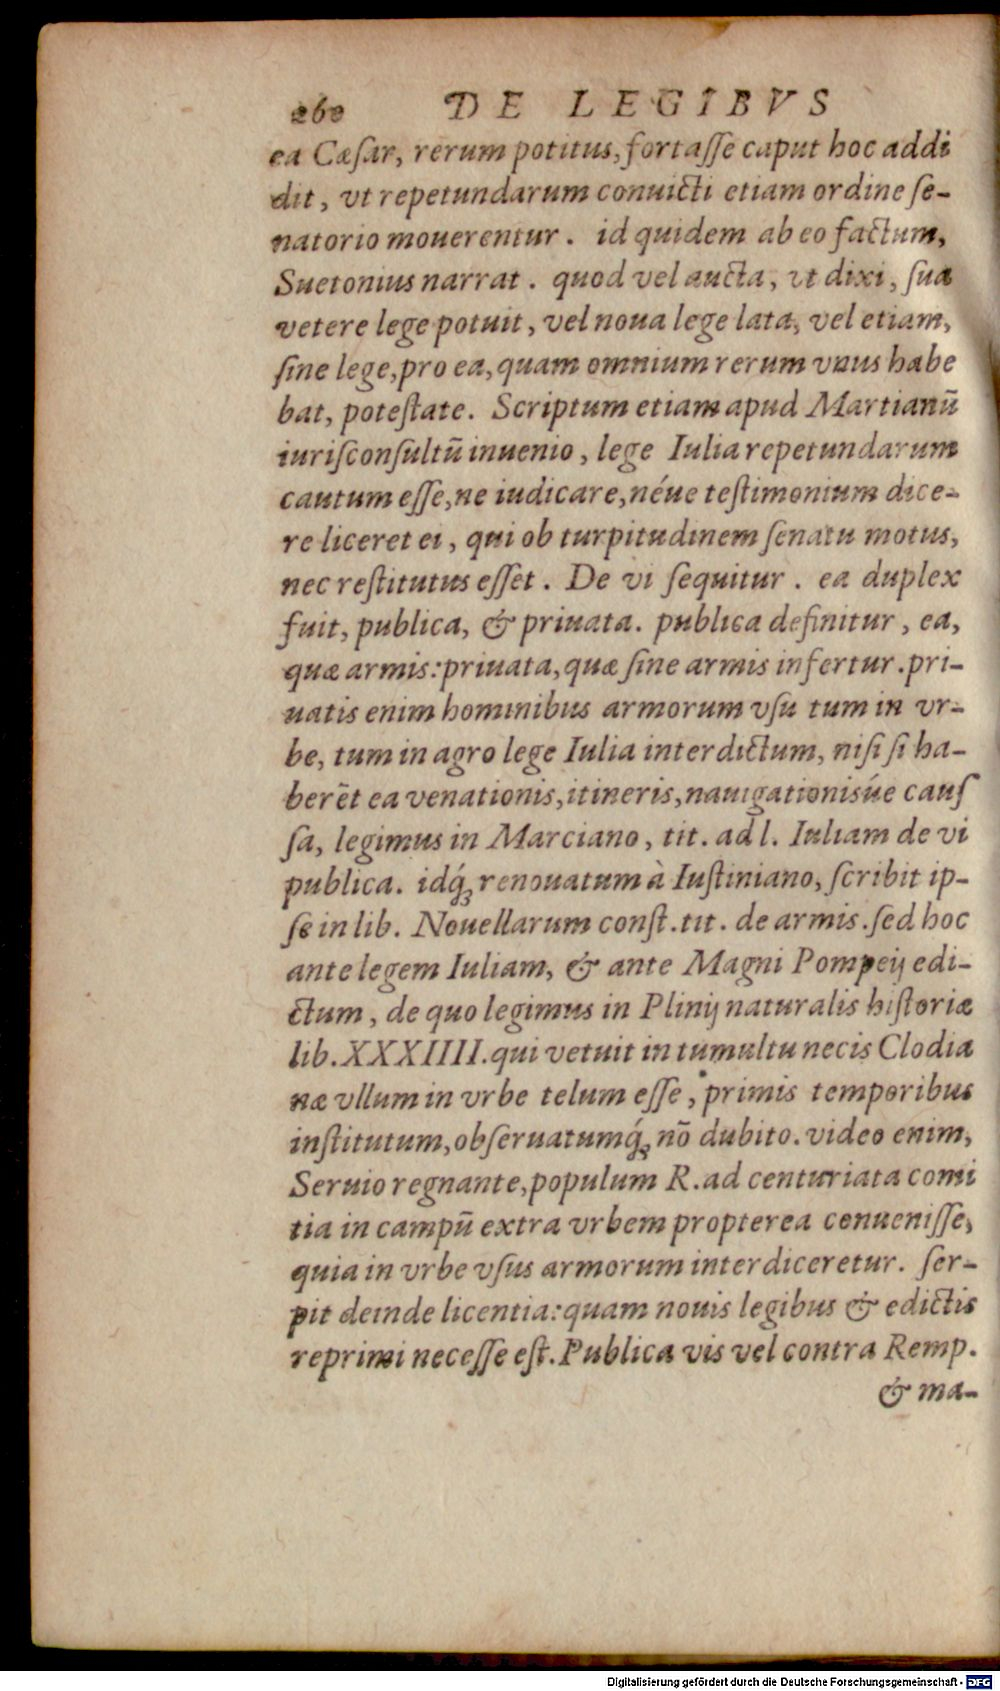 260 DE LEGIBVS
ea Cæſar, rerum potitus, fortaſſe caput hoc addi
dit, vt repetundarum conuicti etiam ordine ſe-
natorio mouerentur. id quidem ab eo factum,
Suetonius narrat. quod vel aucta, vt dixi, ſua
vetere lege potuit, vel noua lege lata, vel etiam,
ſine lege, pro ea, quam omnium rerum vnus habe
bat, poteſtate. Scriptum etiam apud Martianū
iuriſconſultū inuenio, lege Iulia repetundarum
cautum eſſe, ne iudicare, néue teſtimonium dice-
re liceret ei, qui ob turpitudinem ſenatu motus,
nec reſtitutus eſſet. De vi ſequitur. ea duplex
fuit, publica, & priuata. publica definitur, ea,
quæ armis: priuata, quæ ſine armis infertur. pri-
uatis enim hominibus armorum vſu tum in vr-
be, tum in agro lege Iulia interdictum, niſi ſi ha-
berēt ea venationis, itineris, nauigationisúe cauſ
ſa, legimus in Marciano, tit. ad l. Iuliam de vi
publica. idq́ꝫ renouatum à Iuſtiniano, ſcribit ip-
ſe in lib. Nouellarum conſt. tit. de armis. ſed hoc
ante legem Iuliam, & ante Magni Pompeij edi-
ctum, de quo legimus in Plinij naturalis hiſtoriæ
lib. XXXIIII. qui vetuit in tumultu necis Clodia
næ vllum in vrbe telum eſſe, primis temporibus
inſtitutum, obſeruatumq́ꝫ nō dubito. video enim,
Seruio regnante, populum R. ad centuriata comi
tia in campū extra vrbem propterea conueniſſe,
quia in vrbe vſus armorum interdiceretur. ſer-
pit deinde licentia: quam nouis legibus & edictis
reprimi neceſſe eſt. Publica vis vel contra Remp.
& ma-
Digitalisierung gefördert durch die Deutsche Forschungsgemeinschaft - DFG